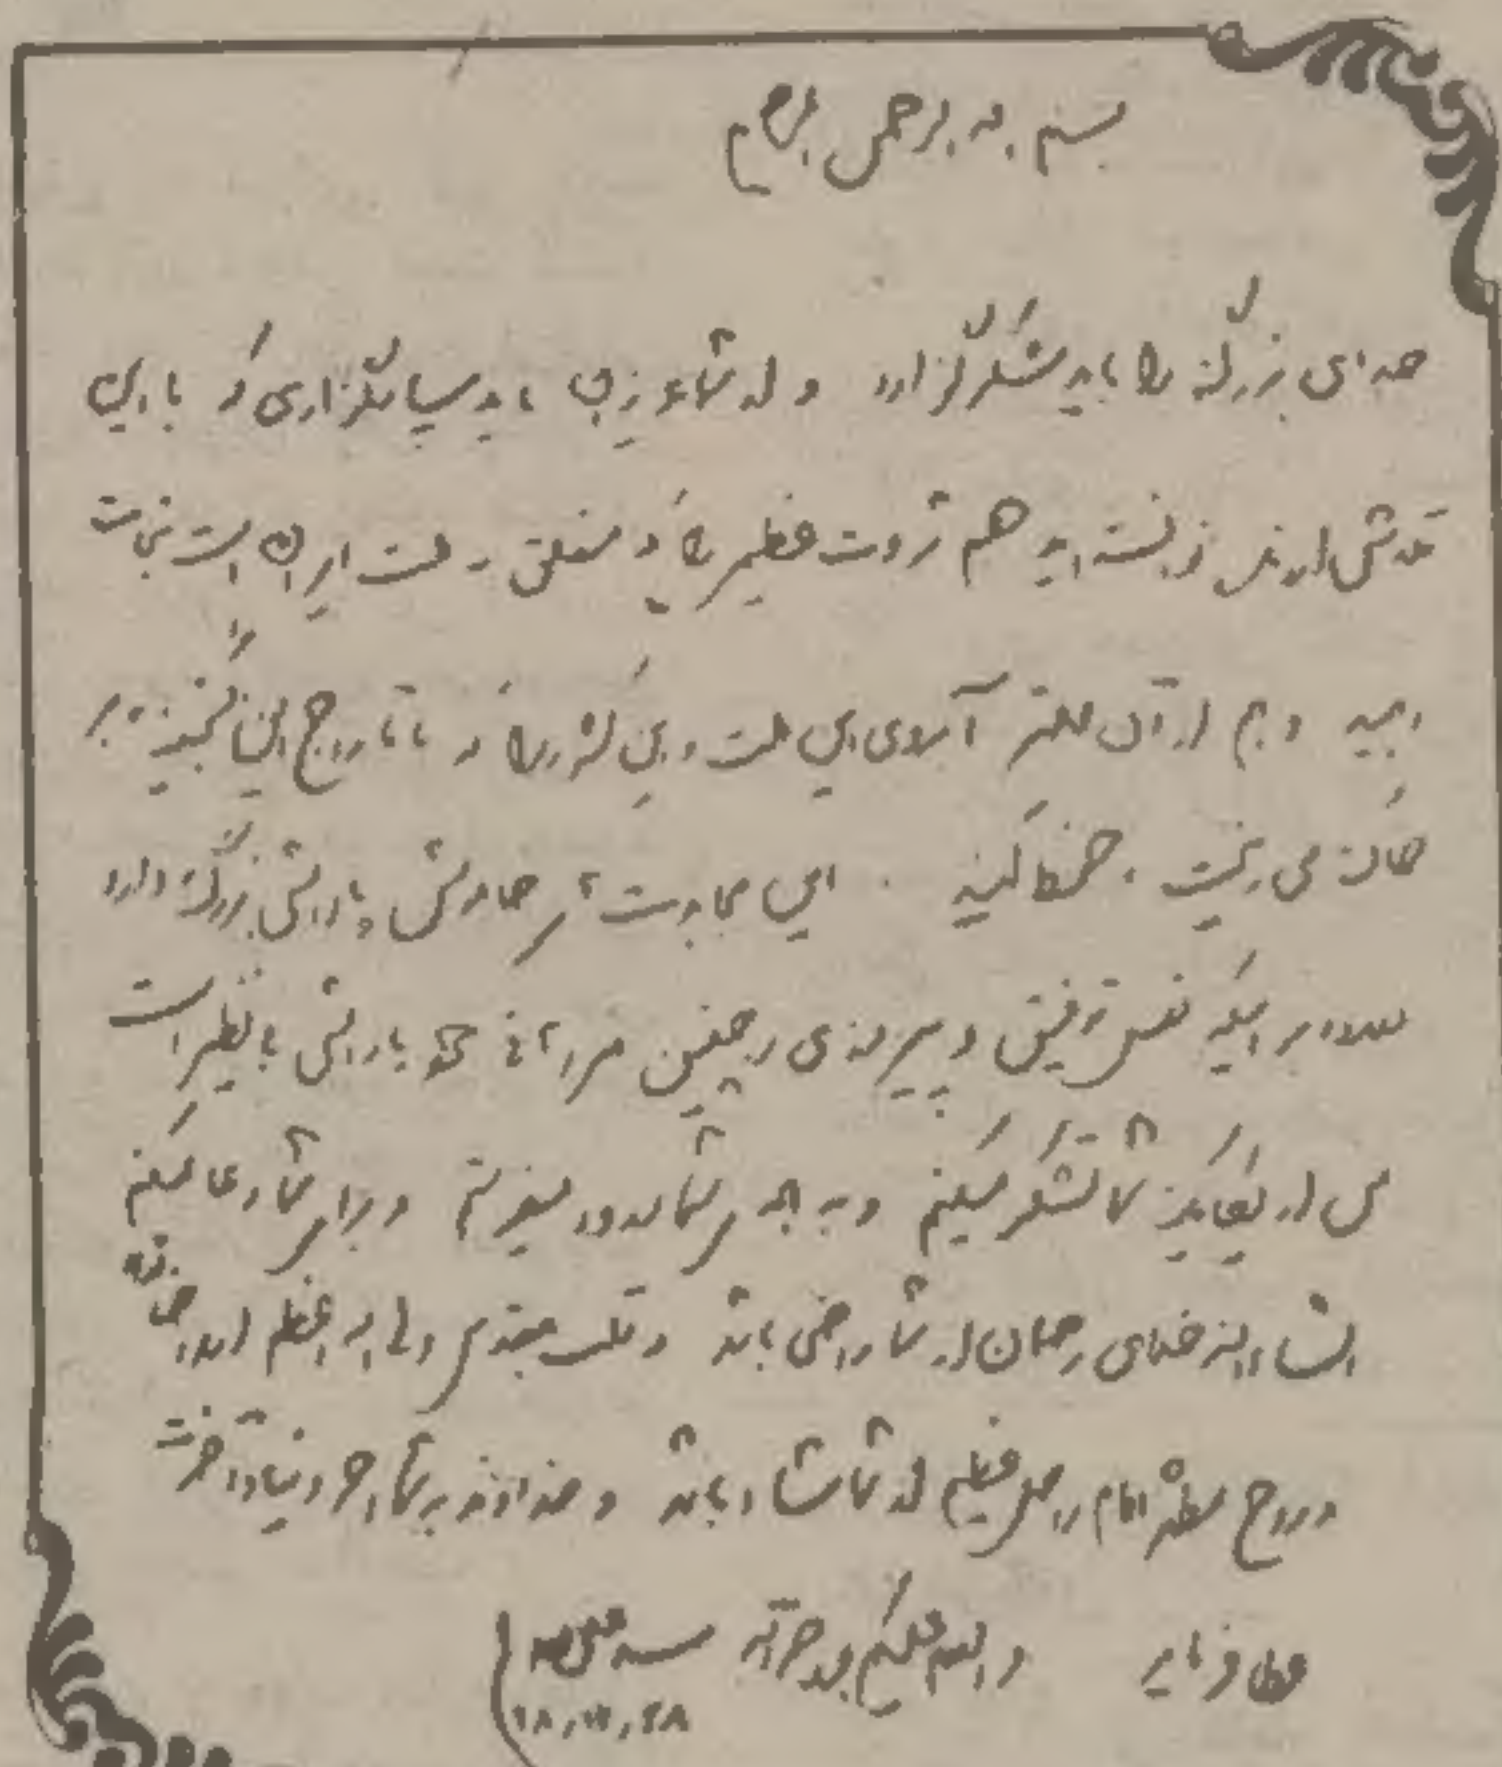 بسم الله الرحمن الرحیم
خدای بزرگ را باید شکرگزارد و از شما عزیزان باید سپاسگزاری کرد که با این
تلاش ارزنده توانسته‌اید هم ثروت عظیمی را که متعلق به ملت ایران است نجات
دهید و هم از آن مهمتر آبروی این ملت و این کشور را که با تاراج این گنجینه بر
خاک می‌ریخت، حفظ کنید. این مجاهدت شما پاداش بزرگ دارد
علاوه بر اینکه نفس توفیق و پیروزی در چنین خود پاداش با عظمتی است
من از یکایک شما تشکر میکنم و به همه شما درود میفرستم و برای شما دعا میکنم
انشاءالله خدای رحمان از شما راضی باشد و قلب مقدس ولی الله اعظم ارواحنا فداه
و روح مطهر امام راحل عظیم از شما شاد باشد و خداوند به شما اجر دنیا و آخرت
عطا فرماید والسلام علیکم و رحمةالله سید علی خامنه‌ای